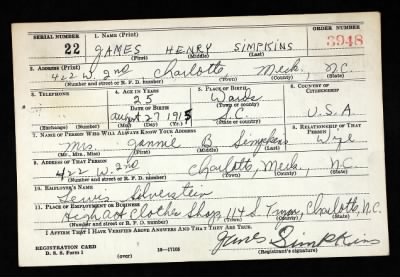 SERIAL NUMBER 1. NAME (Print) ORDER NUMBER
22 JAMES HENRY SIMPKINS 3948
(First) (Middle) (Last)
2. ADDRESS (Print)
422 W. 2nd Charlotte, Meck, N.C.
(Number and street or R. F. D. number) (Town) (County) (State)
3. TELEPHONE 4. AGE IN YEARS 5. PLACE OF BIRTH 6. COUNTRY OF CITIZENSHIP
25 Wards
DATE OF BIRTH (Town or county)
August 27 1915 S.C. U.S.A
(Exchange) (Number) (Mo.) (Day) (Yr.) (State or country)
7. NAME OF PERSON WHO WILL ALWAYS KNOW YOUR ADDRESS RELATIONSHIP OF THAT PERSON
Mrs. Jannie B Simpkins Wife
(Mr., Mrs., Miss) (First) (Middle) (Last)
9. ADDRESS OF THAT PERSON
422 W. 2nd Charlotte, Meck, N.C.
(Number and street or R. F. D. number) (Town) (County) (State)
10. EMPLOYER'S NAME
Lewis Silverstein
11. PLACE OF EMPLOYMENT OR BUSINESS
Clothes Shop, 114 S. Tryon, Charlotte, N.C.
(Number and street or R. F. D. number) (Town) (County) (State)
I AFFIRM THAT I HAVE VERIFIED ABOVE ANSWERS AND THAT THEY ARE TRUE.
REGISTRATION CARD James Simpkins
D. S. S. Form 1 (over) 16-17105 (Registrant's signature)